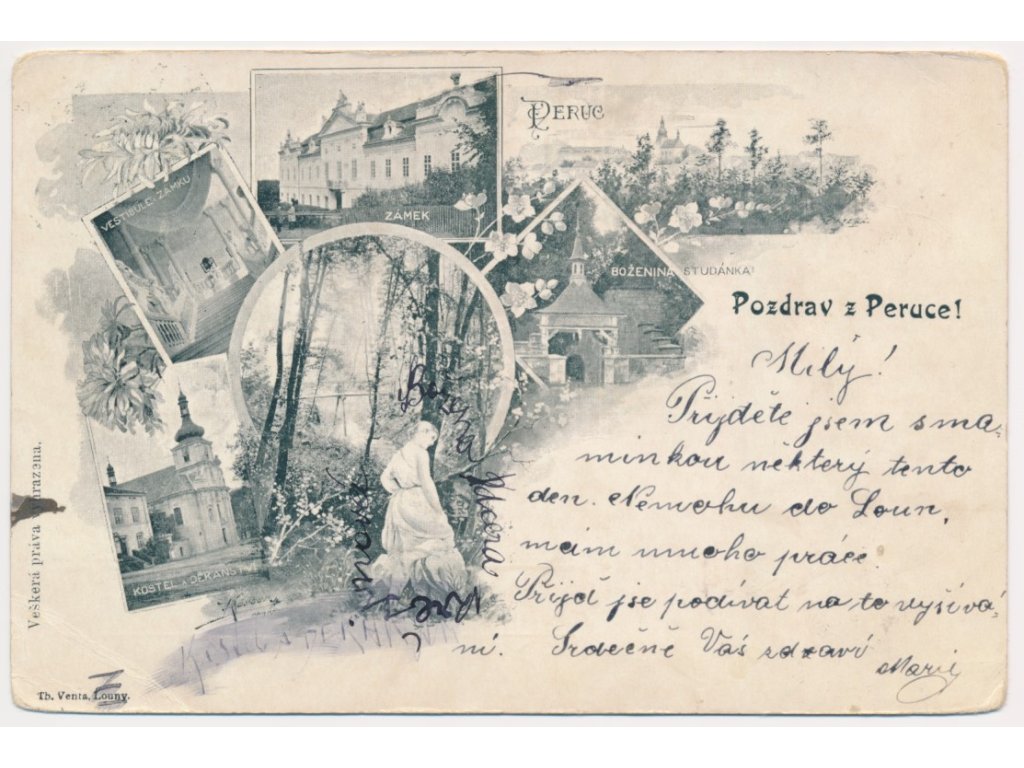 PERUC
ZÁMEK
VESTIBULE ZÁMKU
BOŽENINA STUDÁNKA
Pozdrav z Peruce!
Milý!
Přijděte jsem s ma-
minkou některý tento
den. Nemohu do Loun,
mám mnoho práce.
Přijď se podívat na to vyšívá-
ní. Srdečně Vás zdraví
Marie
KOSTEL A DĚKANSTVÍ
Božena
Veškerá práva vyhrazena.
Th. Venta, Louny.